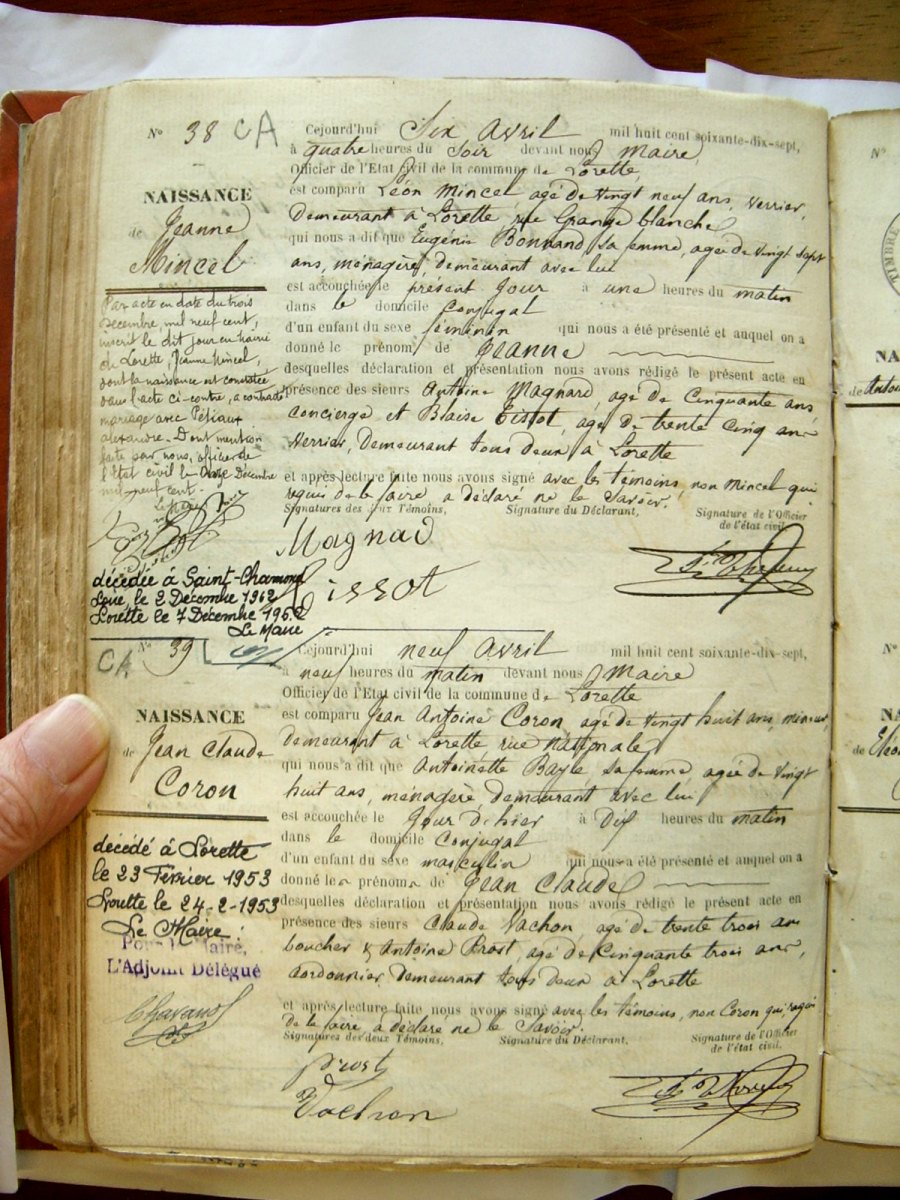 N° 38 CA
NAISSANCE
de Jeanne
Mincel
Par acte en date du trois
Decembre, mil neuf cent,
inscrit le dit jour en mairie
de Lorette, Jeanne Mincel,
dont la naissance est constatée
dans l'acte ci-contre, a contracté
mariage avec Pétiaux
alexandre. Dont mention
faite par nous, officier de
l'état civil le onze Décembre
mil neuf cent.
décédée à Saint-Chamond
Loire, le 2 Décembre 1962
Lorette le 7 Décembre 1962
Le Maire
Cejourd'hui Six Avril mil huit cent soixante-dix-sept,
à quatre heures du Soir devant nous Maire
Officier de l'Etat civil de la commune de Lorette,
est comparu Léon Mincel, agé de vingt neuf ans, verrier,
demeurant à Lorette rue Grange blanche
qui nous a dit que Eugénie Bonnand sa femme, agée de vingt sept
ans, ménagère, demeurant avec lui
est accouchée le présent jour à une heures du matin
dans le domicile Conjugal
d'un enfant du sexe féminin qui nous a été présenté et auquel on a
donné le prénom de Jeanne
desquelles déclaration et présentation nous avons rédigé le présent acte en
présence des sieurs Antoine Magnard, agé de Cinquante ans
concierge et Blaise Tissot, agé de trente cinq ans
verrier, Demeurant tous deux à Lorette
et après lecture faite nous avons signé avec les témoins, non Mincel qui
requis de le faire a déclaré ne le Savoir.
Signatures des deux Témoins, Signature du Déclarant, Signature de l'Officier
de l'état civil.
Magnard
Tissot
CA N° 39
NAISSANCE
de Jean Claude
Coron
décédé à Lorette
le 23 Février 1953
Lorette le 24-2-1953
Le Maire:
Pour le Maire,
L'Adjoint Délégué
Cejourd'hui neuf Avril mil huit cent soixante-dix-sept,
à neuf heures du matin devant nous Maire
Officier de l'Etat civil de la commune de Lorette
est comparu Jean Antoine Coron, agé de vingt huit ans, mineur,
demeurant à Lorette rue Nationale
qui nous a dit que Antoinette Bayle, sa femme, agée de vingt
huit ans, ménagère, demeurant avec lui
est accouchée le jour d'hier à Dix heures du matin
dans le domicile Conjugal
d'un enfant du sexe masculin qui nous a été présenté et auquel on a
donné les prénoms de Jean Claude
desquelles déclaration et présentation nous avons rédigé le présent acte en
présence des sieurs Claude Vachon agé de trente trois ans
boucher & Antoine Prost, agé de Cinquante trois ans,
cordonnier demeurant tous deux à Lorette
et après lecture faite nous avons signé avec les témoins, non Coron qui requis
de le faire, a déclaré ne le Savoir.
Signatures des deux Témoins, Signature du Déclarant, Signature de l'Officier
de l'état civil.
Prost
Vachon
N°
TIMBRE
NA
de Antoi
N°
NA
de